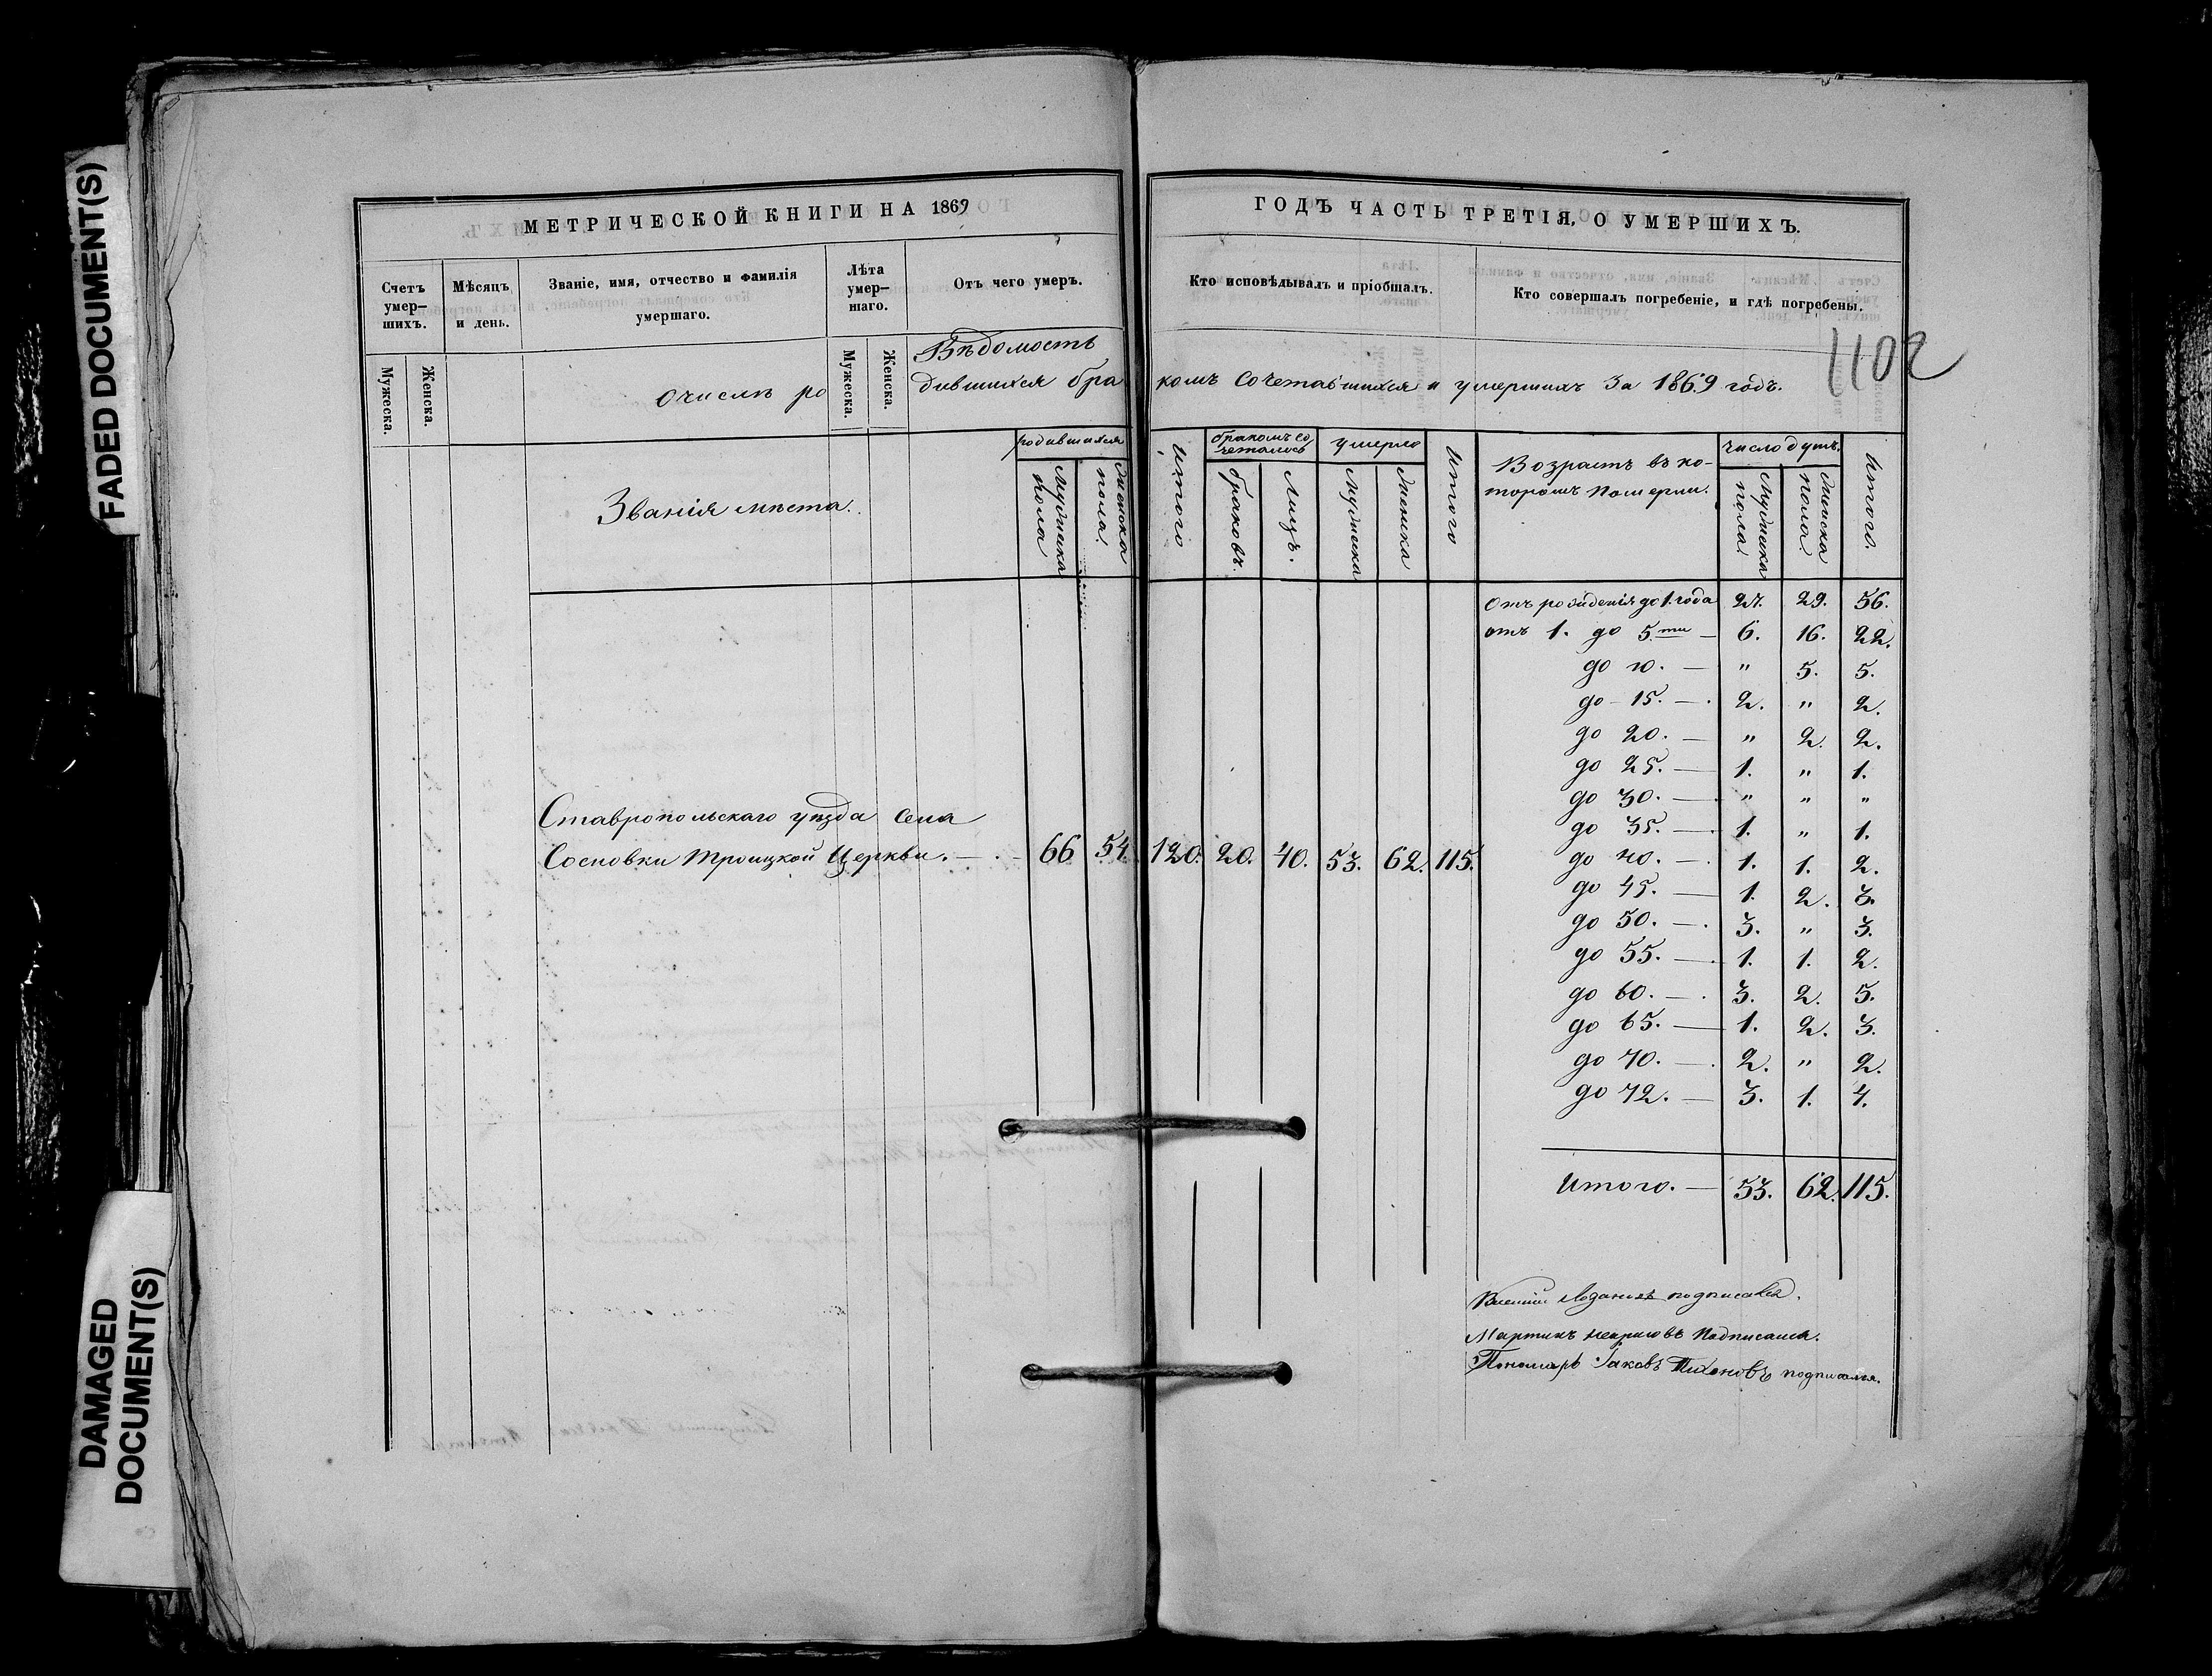 FADED DOCUMENT(S)
DAMAGED
DOCUMENT(S)
МЕТРИЧЕСКОЙ КНИГИ НА 1869
ГОДЪ ЧАСТЬ ТРЕТІЯ, О УМЕРШИХЪ.
Счетъ умер—шихъ.
Мѣсяцъ и день.
Званіе, имя, отчество и фамилія умершаго.
Лѣта умер—шаго.
Отъ чего умеръ.
Кто исповѣдывалъ и пріобщалъ.
Кто совершалъ погребеніе, и гдѣ погребены.
Мужеска. Женска.
Мужеска. Женска.
1102
Вѣдомость
очислѣ родившихся бракомъ сочетавшихся и умершихъ за 1869 годъ.
Званія мѣста.
родившихся
мужеска пола
женска пола.
Итого
бракомъ сочеталось
браковъ.
Лицъ.
умерло
мужеска
женска
Итого
Возрастъ въ ко-
торомъ Померли.
число душъ.
Мужеска пола.
женска пола.
Итого.
Ставропольскаго уѣзда села
Сосновки Троицкой Церкви. — 66 54. 120. 20. 40. 53. 62. 115.
Отъ рожденія до 1. года 27. 29. 56.
отъ 1. до 5.ти — 6. 16. 22.
до 10. — " 5. 5.
до 15. — 2. " 2.
до 20. — " 2. 2.
до 25. — 1. " 1.
до 30. — " " "
до 35. — 1. " 1.
до 40. — 1. 1. 2.
до 45. — 1. 2. 3.
до 50. — 3. " 3.
до 55. — 1. 1. 2.
до 60. — 3. 2. 5.
до 65. — 1. 2. 3.
до 70. — 2. " 2.
до 72. — 3. 1. 4.
Итого. — 53. 62. 115.
подписался.
Мартинъ Подписался.
Пономарь Іаковъ Тихоновъ подписался.